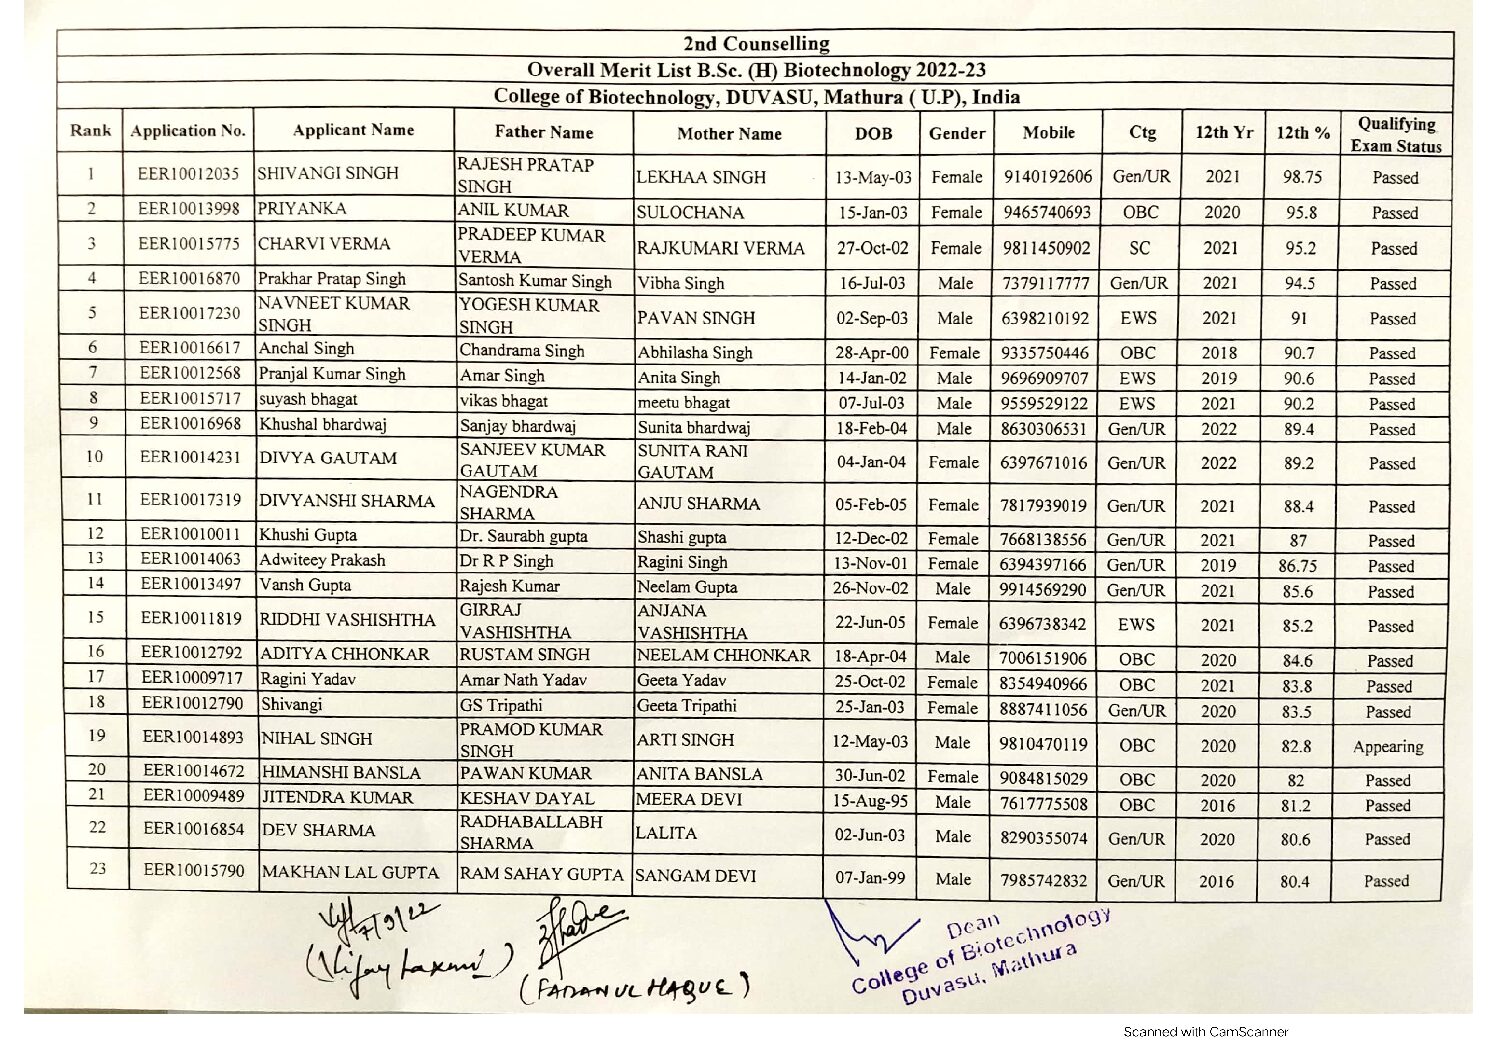 2nd Counselling
Overall Merit List B.Sc. (H) Biotechnology 2022-23
College of Biotechnology, DUVASU, Mathura ( U.P), India
Rank Application No. Applicant Name Father Name Mother Name DOB Gender Mobile Ctg 12th Yr 12th % Qualifying Exam Status
1 EER10012035 SHIVANGI SINGH RAJESH PRATAP SINGH LEKHAA SINGH 13-May-03 Female 9140192606 Gen/UR 2021 98.75 Passed
2 EER10013998 PRIYANKA ANIL KUMAR SULOCHANA 15-Jan-03 Female 9465740693 OBC 2020 95.8 Passed
3 EER10015775 CHARVI VERMA PRADEEP KUMAR VERMA RAJKUMARI VERMA 27-Oct-02 Female 9811450902 SC 2021 95.2 Passed
4 EER10016870 Prakhar Pratap Singh Santosh Kumar Singh Vibha Singh 16-Jul-03 Male 7379117777 Gen/UR 2021 94.5 Passed
5 EER10017230 NAVNEET KUMAR SINGH YOGESH KUMAR SINGH PAVAN SINGH 02-Sep-03 Male 6398210192 EWS 2021 91 Passed
6 EER10016617 Anchal Singh Chandrama Singh Abhilasha Singh 28-Apr-00 Female 9335750446 OBC 2018 90.7 Passed
7 EER10012568 Pranjal Kumar Singh Amar Singh Anita Singh 14-Jan-02 Male 9696909707 EWS 2019 90.6 Passed
8 EER10015717 suyash bhagat vikas bhagat meetu bhagat 07-Jul-03 Male 9559529122 EWS 2021 90.2 Passed
9 EER10016968 Khushal bhardwaj Sanjay bhardwaj Sunita bhardwaj 18-Feb-04 Male 8630306531 Gen/UR 2022 89.4 Passed
10 EER10014231 DIVYA GAUTAM SANJEEV KUMAR GAUTAM SUNITA RANI GAUTAM 04-Jan-04 Female 6397671016 Gen/UR 2022 89.2 Passed
11 EER10017319 DIVYANSHI SHARMA NAGENDRA SHARMA ANJU SHARMA 05-Feb-05 Female 7817939019 Gen/UR 2021 88.4 Passed
12 EER10010011 Khushi Gupta Dr. Saurabh gupta Shashi gupta 12-Dec-02 Female 7668138556 Gen/UR 2021 87 Passed
13 EER10014063 Adwiteey Prakash Dr R P Singh Ragini Singh 13-Nov-01 Female 6394397166 Gen/UR 2019 86.75 Passed
14 EER10013497 Vansh Gupta Rajesh Kumar Neelam Gupta 26-Nov-02 Male 9914569290 Gen/UR 2021 85.6 Passed
15 EER10011819 RIDDHI VASHISHTHA GIRRAJ VASHISHTHA ANJANA VASHISHTHA 22-Jun-05 Female 6396738342 EWS 2021 85.2 Passed
16 EER10012792 ADITYA CHHONKAR RUSTAM SINGH NEELAM CHHONKAR 18-Apr-04 Male 7006151906 OBC 2020 84.6 Passed
17 EER10009717 Ragini Yadav Amar Nath Yadav Geeta Yadav 25-Oct-02 Female 8354940966 OBC 2021 83.8 Passed
18 EER10012790 Shivangi GS Tripathi Geeta Tripathi 25-Jan-03 Female 8887411056 Gen/UR 2020 83.5 Passed
19 EER10014893 NIHAL SINGH PRAMOD KUMAR SINGH ARTI SINGH 12-May-03 Male 9810470119 OBC 2020 82.8 Appearing
20 EER10014672 HIMANSHI BANSLA PAWAN KUMAR ANITA BANSLA 30-Jun-02 Female 9084815029 OBC 2020 82 Passed
21 EER10009489 JITENDRA KUMAR KESHAV DAYAL MEERA DEVI 15-Aug-95 Male 7617775508 OBC 2016 81.2 Passed
22 EER10016854 DEV SHARMA RADHABALLABH SHARMA LALITA 02-Jun-03 Male 8290355074 Gen/UR 2020 80.6 Passed
23 EER10015790 MAKHAN LAL GUPTA RAM SAHAY GUPTA SANGAM DEVI 07-Jan-99 Male 7985742832 Gen/UR 2016 80.4 Passed
7/9/22
(Vijay Laxmi)
(FADANUL HAQUE)
Dean
College of Biotechnology
Duvasu, Mathura
Scanned with CamScanner